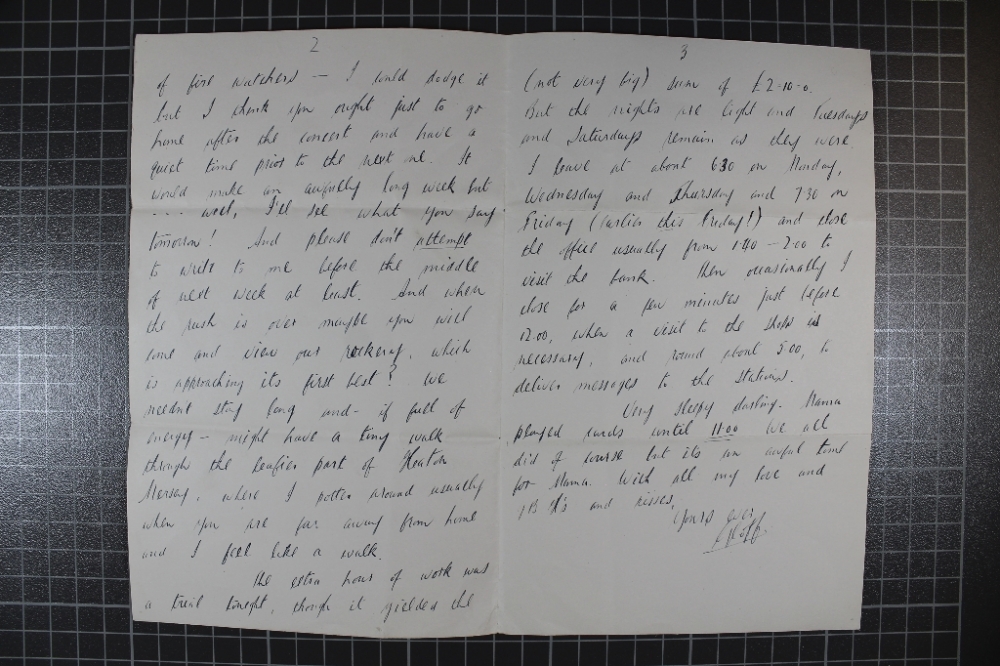 2
of fire watchers — I could dodge it
but I think you ought just to go
home after the concert and have a
quiet time prior to the next one. It
would make an awfully long week but
... well, I'll see what you say
tomorrow! And please don't attempt
to write to me before the middle
of next week at least. And when
the rush is over maybe you will
come and view our rockery, which
is approaching its first best? We
needn't stay long and - if full of
energy - might have a tiny walk
through the leafier part of Heaton
Mersey, where I potter around usually
when you are far away from home
and I feel like a walk.
The extra hour of work was
a trial tonight, though it yielded the
3
(not very big) sum of £2-10-0.
But the nights are light and Tuesdays
and Saturdays remain as they were.
I leave at about 6.30 on Monday,
Wednesday and Thursday and 7.30 on
Friday (earlier this Friday!) and close
the office usually from 1.40 - 2.00 to
visit the bank. Then occasionally I
close for a few minutes just before
12.00, when a visit to the shops is
necessary, and round about 5.00, to
deliver messages to the stations.
Very sleepy darling. Mama
played cards until 11.00 We all
did of course but its an awful time
for Mama. With all my love and
and kisses,
Yours ever